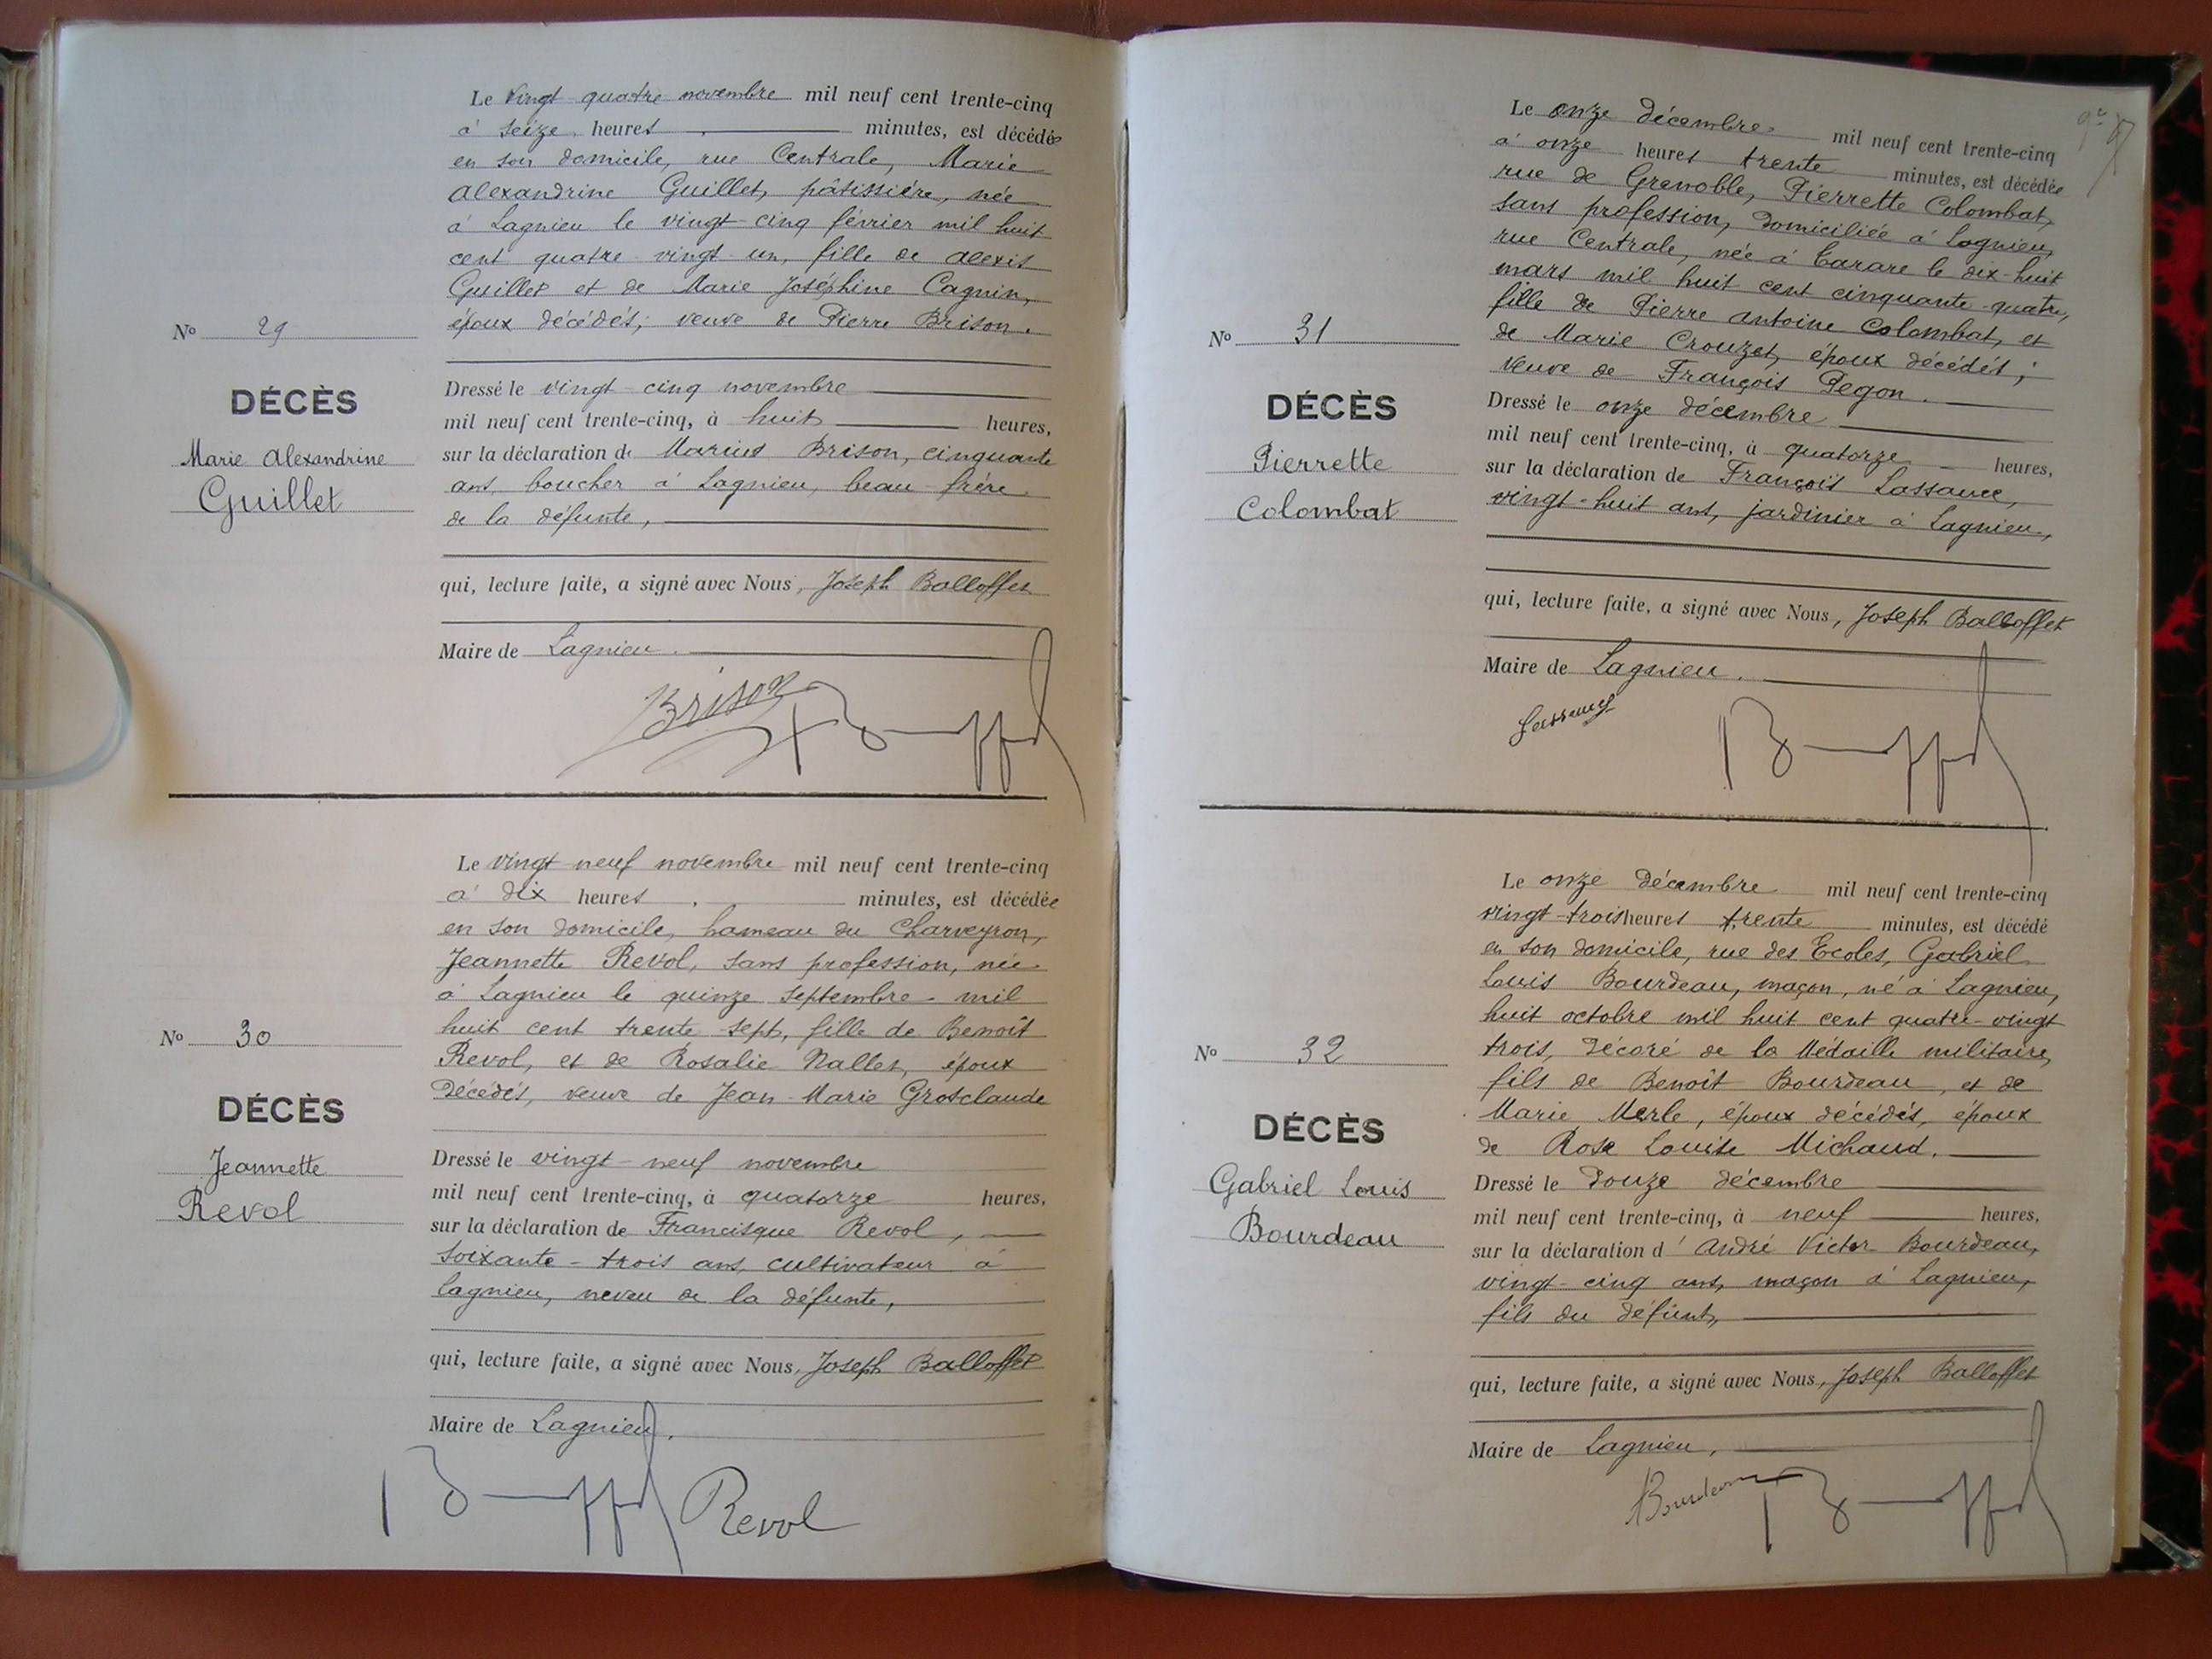 Le vingt-quatre novembre mil neuf cent trente-cinq
à seize heures minutes, est décédée
en son domicile, rue Centrale, Marie
Alexandrine Guillet, pâtissière, née
à Lagnieu le vingt-cinq février mil huit
cent quatre-vingt-un, fille de Alexis
Guillet et de Marie Joséphine Cagnin,
époux décédés; veuve de Pierre Brison.
No 29
DÉCÈS
Marie Alexandrine
Guillet
Dressé le vingt-cinq novembre
mil neuf cent trente-cinq, à huit heures,
sur la déclaration de Marius Brison, cinquante
ans, boucher à Lagnieu, beau-frère
de la défunte,
qui, lecture faite, a signé avec Nous, Joseph Balloffet
Maire de Lagnieu.
Brison
Le vingt-neuf novembre mil neuf cent trente-cinq
à dix heures minutes, est décédée
en son domicile, hameau du Charveyron,
Jeannette Revol, sans profession, née
à Lagnieu le quinze septembre mil
huit cent trente-sept, fille de Benoît
Revol, et de Rosalie Nallet, époux
décédés, veuve de Jean-Marie Grosclaude
No 30
DÉCÈS
Jeannette
Revol
Dressé le vingt-neuf novembre
mil neuf cent trente-cinq, à quatorze heures,
sur la déclaration de Francisque Revol,
soixante-trois ans, cultivateur à
Lagnieu, neveu de la défunte,
qui, lecture faite, a signé avec Nous, Joseph Balloffet
Maire de Lagnieu.
Revol
Le onze décembre mil neuf cent trente-cinq
à onze heures trente minutes, est décédée
rue de Grenoble, Pierrette Colombat,
sans profession, domiciliée à Lagnieu,
rue Centrale, née à Tarare le dix-huit
mars mil huit cent cinquante-quatre,
fille de Pierre Antoine Colombat, et
de Marie Crouzet, époux décédés;
veuve de François Pegon.
No 31
DÉCÈS
Pierrette
Colombat
Dressé le onze décembre
mil neuf cent trente-cinq, à quatorze heures,
sur la déclaration de François Lassauce,
vingt-huit ans, jardinier à Lagnieu,
qui, lecture faite, a signé avec Nous, Joseph Balloffet
Maire de Lagnieu.
Le onze décembre mil neuf cent trente-cinq
vingt-trois heures trente minutes, est décédé
en son domicile, rue des Ecoles, Gabriel
Louis Bourdeau, maçon, né à Lagnieu,
huit octobre mil huit cent quatre-vingt
trois, décoré de la Médaille militaire,
fils de Benoît Bourdeau, et de
Marie Merle, époux décédés, époux
de Rose Louise Michaud.
No 32
DÉCÈS
Gabriel Louis
Bourdeau
Dressé le douze décembre
mil neuf cent trente-cinq, à neuf heures,
sur la déclaration d'André Victor Bourdeau,
vingt-cinq ans, maçon à Lagnieu,
fils du défunt,
qui, lecture faite, a signé avec Nous, Joseph Balloffet
Maire de Lagnieu,
Bourdeau